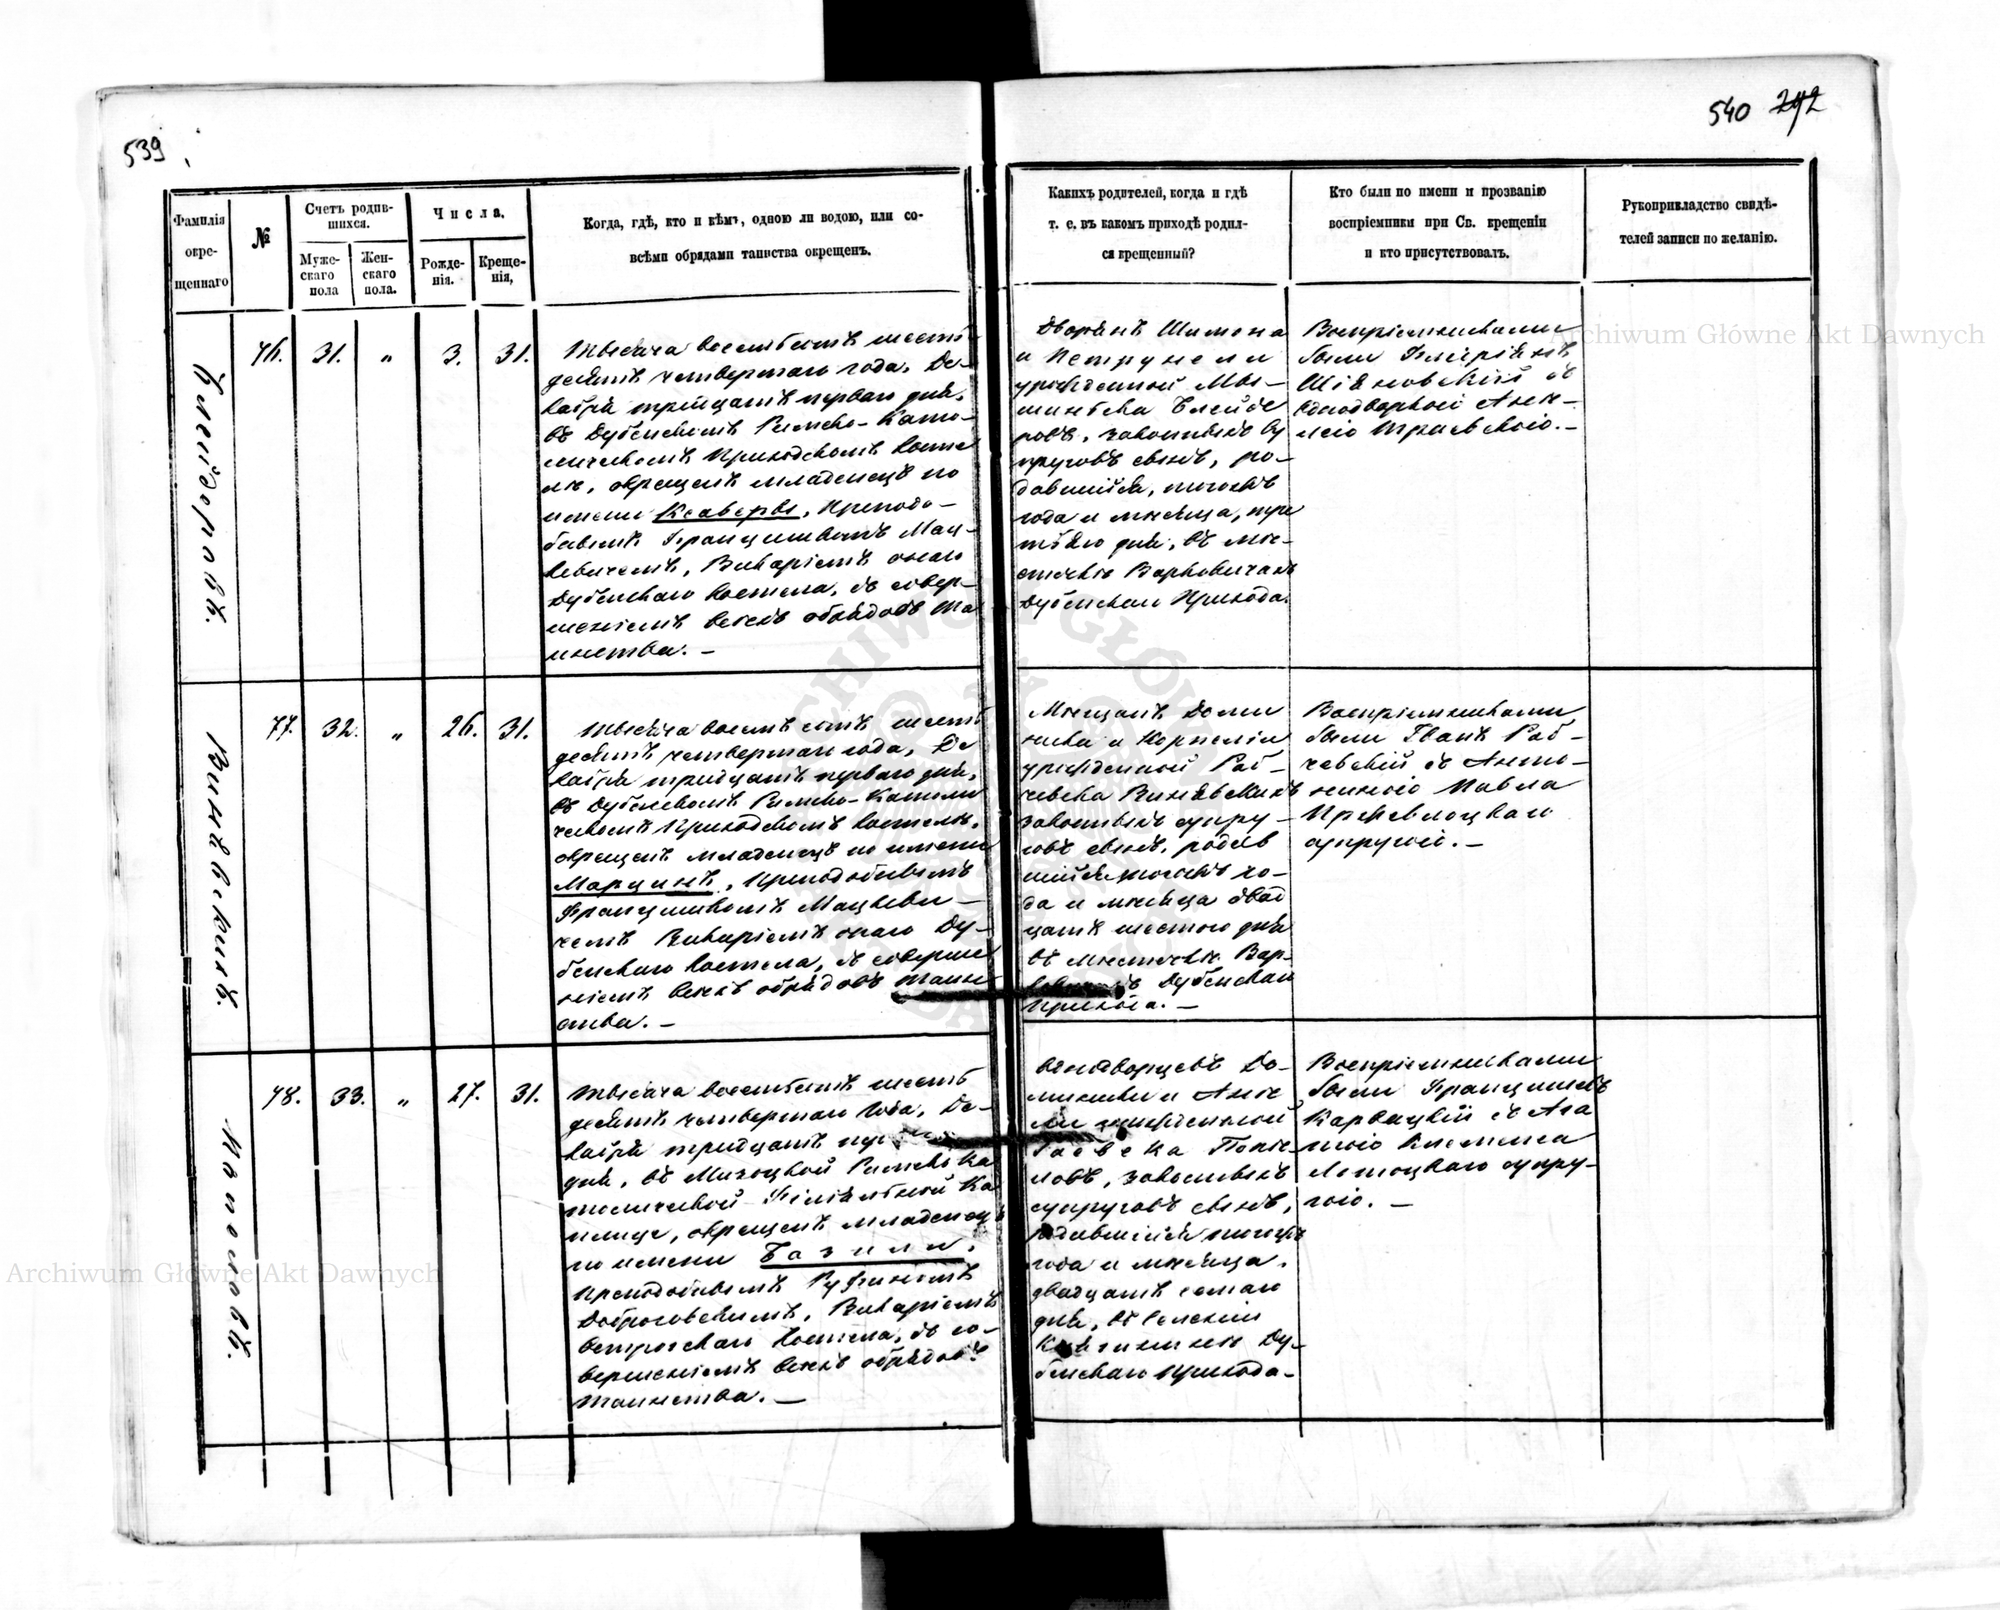 539
540 242
Фамилія окре-щеннаго
№
Счетъ родив-шихся.
Муже-скаго пола
Жен-скаго пола.
Числа.
Рожде-нія.
Креще-нія,
Когда, гдѣ, кто и кѣмъ, одною ли водою, или со-
всѣми обрядами таинства окрещенъ.
Какихъ родителей, когда и гдѣ
т. е. въ какомъ приходѣ родил-
ся крещенный?
Кто были по имени и прозванію
воспріемники при Св. крещеніи
и кто присутствовалъ.
Рукоприкладство свидѣ-
телей записи по желанію.
76. 31. „ 3. 31.
Тысяча восемьсотъ шесть
десятъ четвертаго года, Де-
кабря тридцать перваго дня,
въ Дубенскомъ Римско-Като-
лическомъ Приходскомъ косте
лѣ, окрещенъ младенецъ по
имени Ксаверы, Преподо-
бнымъ Францишкомъ Мац-
кевичемъ, Викаріемъ онаго
Дубенскаго костела, съ совер-
шеніемъ всѣхъ обрядовъ Та
инства. —
Дворянъ Шимона
и Петрунели
урожденной Мы-
шиньска
ровъ, законныхъ су
пруговъ сынъ, ро-
дившійся, тогожъ
года и мѣсяца, тре
тьяго дня, въ мѣ-
стечкѣ Варковичахъ
Дубенскаго Прихода.
Воспріемниками
были
съ
Однодворкой
77. 32. „ 26. 31.
Тысяча восемьсотъ шесть
десятъ четвертаго года, Де
кабря тридцать перваго дня,
въ Дубенскомъ Римско-Католи
ческомъ Приходскомъ костелѣ,
окрещенъ младенецъ по имени
Марцинъ, Преподобнымъ
Францишкомъ Мацкеви-
чемъ Викаріемъ онаго Ду-
бенскаго костела, съ соверше
ніемъ всѣхъ обрядовъ Таин
ства. —
Мѣщанъ Доми
ника и Корнеліи
урожденной Раб-
чевска
законныхъ супру-
говъ сынъ, родив
шійся тогожъ го-
да и мѣсяца двад
цать шестого дня
въ мѣстечкѣ Вар-
Дубенскаго
Прихода. —
Воспріемниками
были Иванъ Раб-
чевскій съ Анто-
ниною Павла
супругою. —
78. 33. „ 27. 31.
Поповъ.
Тысяча восемьсотъ шесть
десятъ четвертаго года, Де-
кабря тридцать
дня, въ Мизоцкой Римско Ка
толической Филіальной Ка
плице, окрещенъ младенецъ
по имени Базили,
Преподобнымъ Руфиномъ
Доброговскимъ, Викаріемъ
Острогскаго костела, съ со-
вершеніемъ всѣхъ обрядовъ
Таинства. —
Однодворцевъ До-
миника и
урожденной
законныхъ
супруговъ сынъ,
родившійся тогожъ
года и мѣсяца,
двадцать семаго
дня, въ селеніи
Ду-
бенскаго Прихода.
Воспріемниками
были Францишекъ
Карвацкій съ Ага
тою Клеменса
супру-
гою. —
Archiwum Główne Akt Dawnych
Archiwum Główne Akt Dawnych